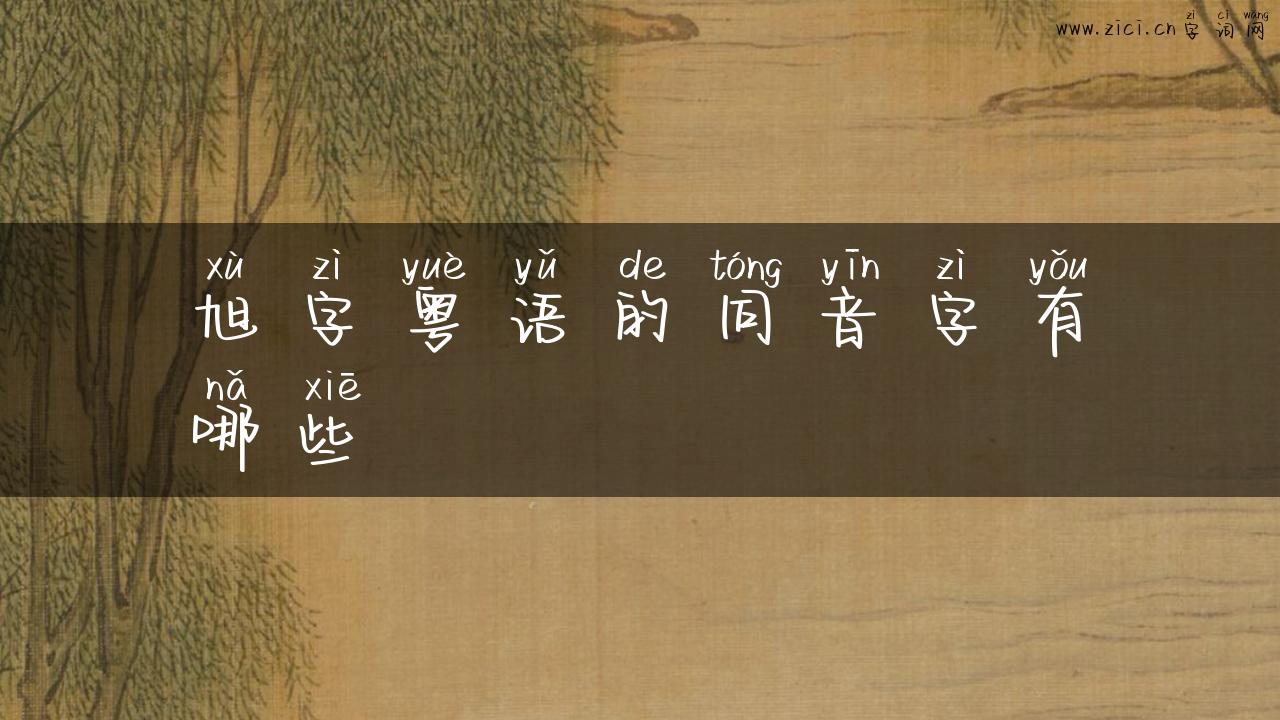 zì cí wǎng
www.zici.cn 字词网
xù zì yuè yǔ de tóng yīn zì yǒu
旭字粤语的同音字有
nǎ xiē
哪些